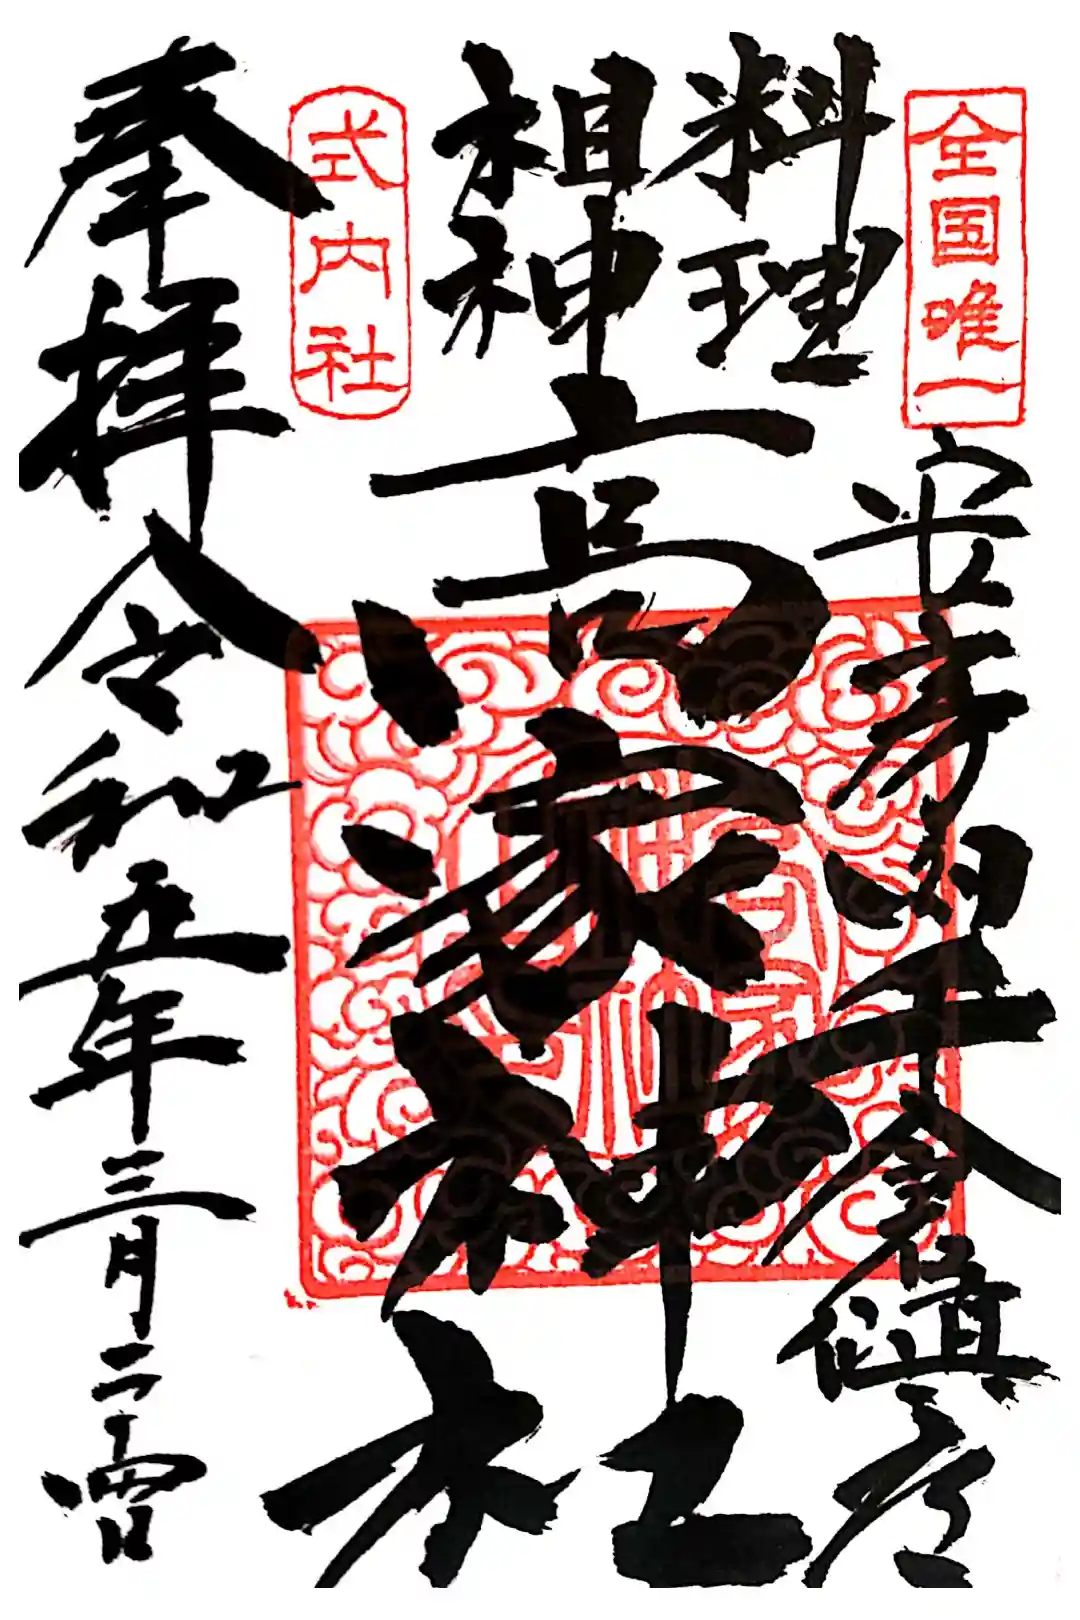 全国唯一
安房国千倉鎮座
料理
祖神
高家神社
式内社
奉拝
令和五年三月二十四日